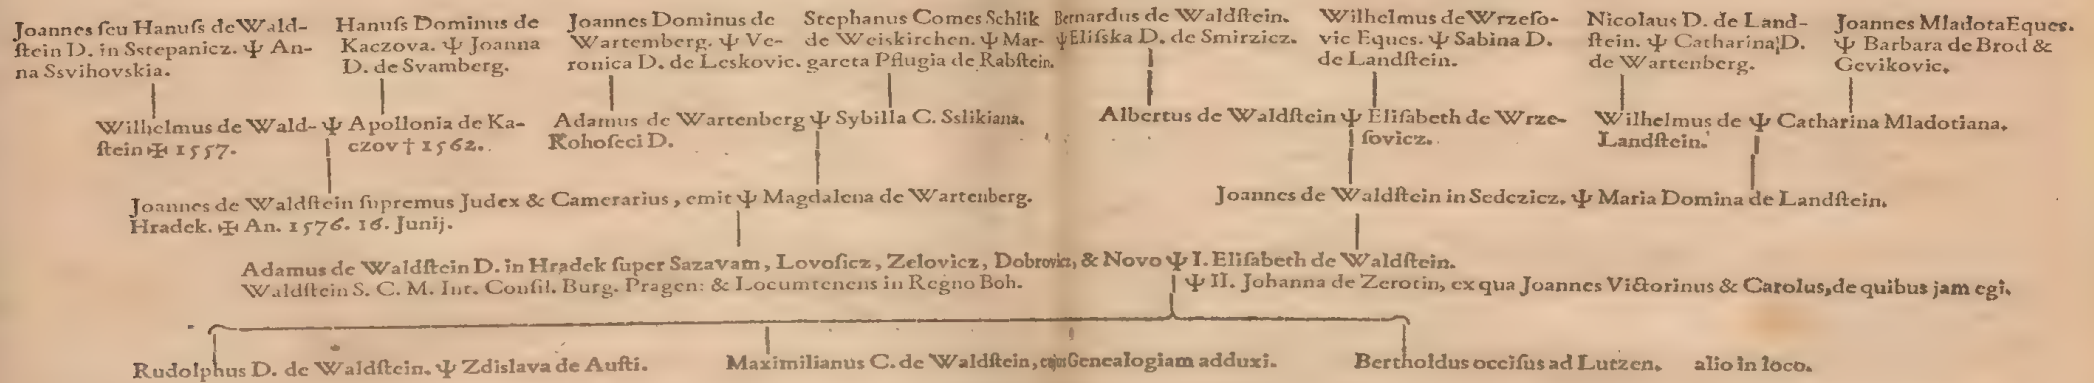 Joannes ſeu Hanuſs de Wald-
ſtein D. in Sstepanicz. Ψ An-
na Ssvihovskia.
Hanuſs Dominus de
Kaczova. Ψ Joanna
D. de Svamberg.
Joannes Dominus de
Wartemberg. Ψ Ve-
ronica D. de Leskovic.
Stephanus Comes Schlik
de Weiskirchen. Ψ Mar-
gareta Pflugia de Rabſtein.
Bernardus de Waldſtein.
Ψ Eliſska D. de Smirzicz.
Wilhelmus de Wrzeſo-
vic Eques. Ψ Sabina D.
de Landſtein.
Nicolaus D. de Land-
ſtein. Ψ Catharina D.
de Wartenberg.
Joannes Mladota Eques.
Ψ Barbara de Brod &
Gevikovic.
Wilhelmus de Wald- Ψ Apollonia de Ka-
ſtein ✠ 1557. czov † 1562.
Adamus de Wartenberg Ψ Sybilla C. Sslikiana.
Rohoſeci D.
Albertus de Waldſtein Ψ Eliſabeth de Wrze-
ſovicz.
Wilhelmus de Ψ Catharina Mladotiana.
Landſtein.
Joannes de Waldſtein ſupremus Judex & Camerarius, emit Ψ Magdalena de Wartenberg.
Hradek. ✠ An. 1576. 16. Junij.
Joannes de Waldſtein in Sedczicz. Ψ Maria Domina de Landſtein.
Adamus de Waldſtein D. in Hradek ſuper Sazavam, Lovoſicz, Zelovicz, Dobrovicz, & Novo Ψ I. Eliſabeth de Waldſtein.
Waldſtein S. C. M. Int. Conſil. Burg. Pragen: & Locumtenens in Regno Boh. Ψ II. Johanna de Zerotin, ex qua Joannes Victorinus & Carolus, de quibus jam egi.
Rudolphus D. de Waldſtein. Ψ Zdislava de Auſti.
Maximilianus C. de Waldſtein, cujus Genealogiam adduxi.
Bertholdus occiſus ad Lutzen. alio in loco.